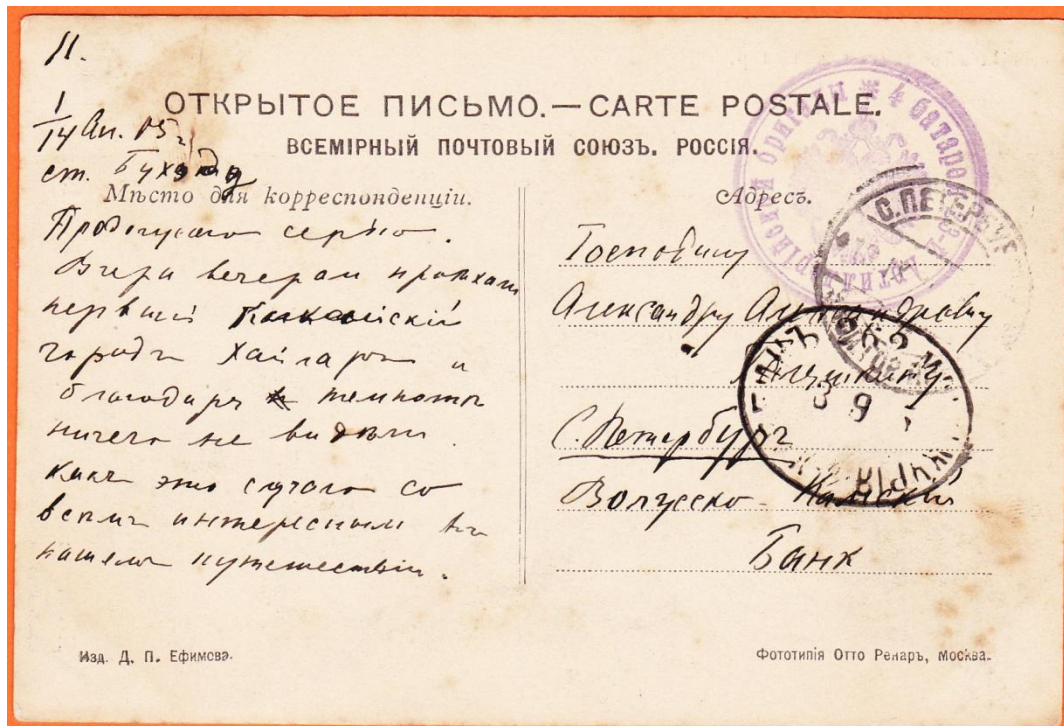 11.
1/14 Ап. 05 г.
ст. Бухэду
ОТКРЫТОЕ ПИСЬМО.—CARTE POSTALE.
ВСЕМІРНЫЙ ПОЧТОВЫЙ СОЮЗЪ. РОССІЯ.
Мѣсто для корреспонденціи.
Продолжаю серію.
Вчера вечеромъ проѣхали
первый Китайскій
городъ Хайларъ и
благодаря темнотѣ
ничего не видѣли.
Какъ это случало со
всѣмъ интереснымъ въ
нашемъ путешествіи.
Адресъ.
Господину
Александру Александровичу
С. Петербургъ
Волжско-Камскій
Банк
4 батаро
бригады
С.ПЕТЕРБУРГ
262
3 9
Изд. Д. П. Ефимова.
Фототипія Отто Ренаръ, Москва.